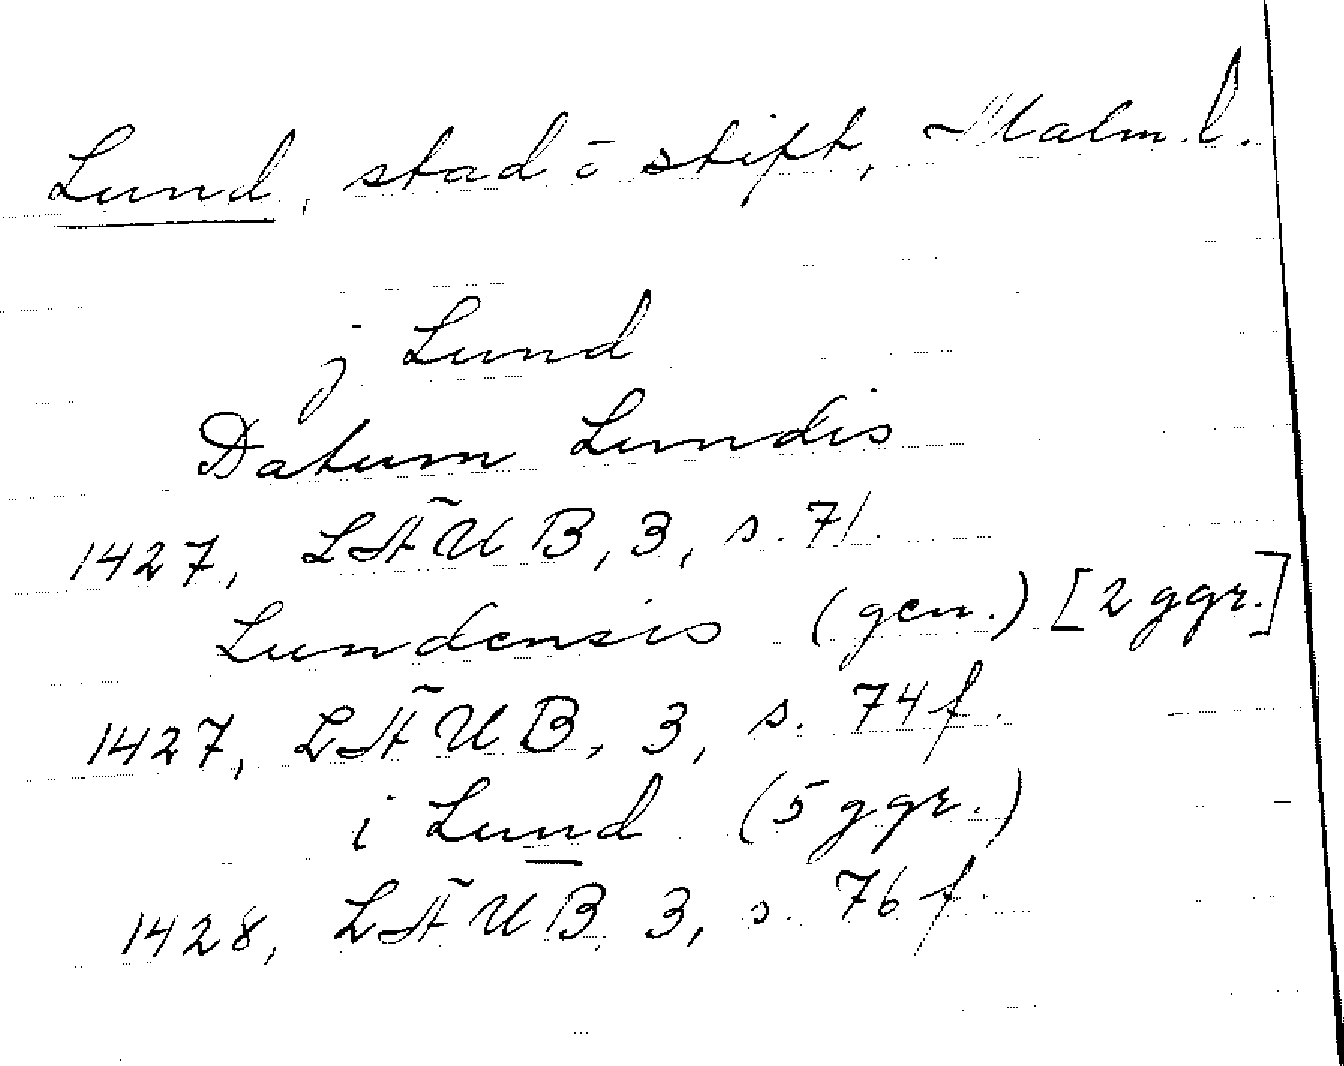 Lund, stad o stift, Malm. l.
j Lund
Datum Lundis
1427, LÄUB, 3, s. 71.
Lundensis (gen.) [2 ggr.]
1427, LÄUB, 3, s. 74 f.
i Lund (5 ggr.)
1428, LÄUB, 3, s. 76 f.